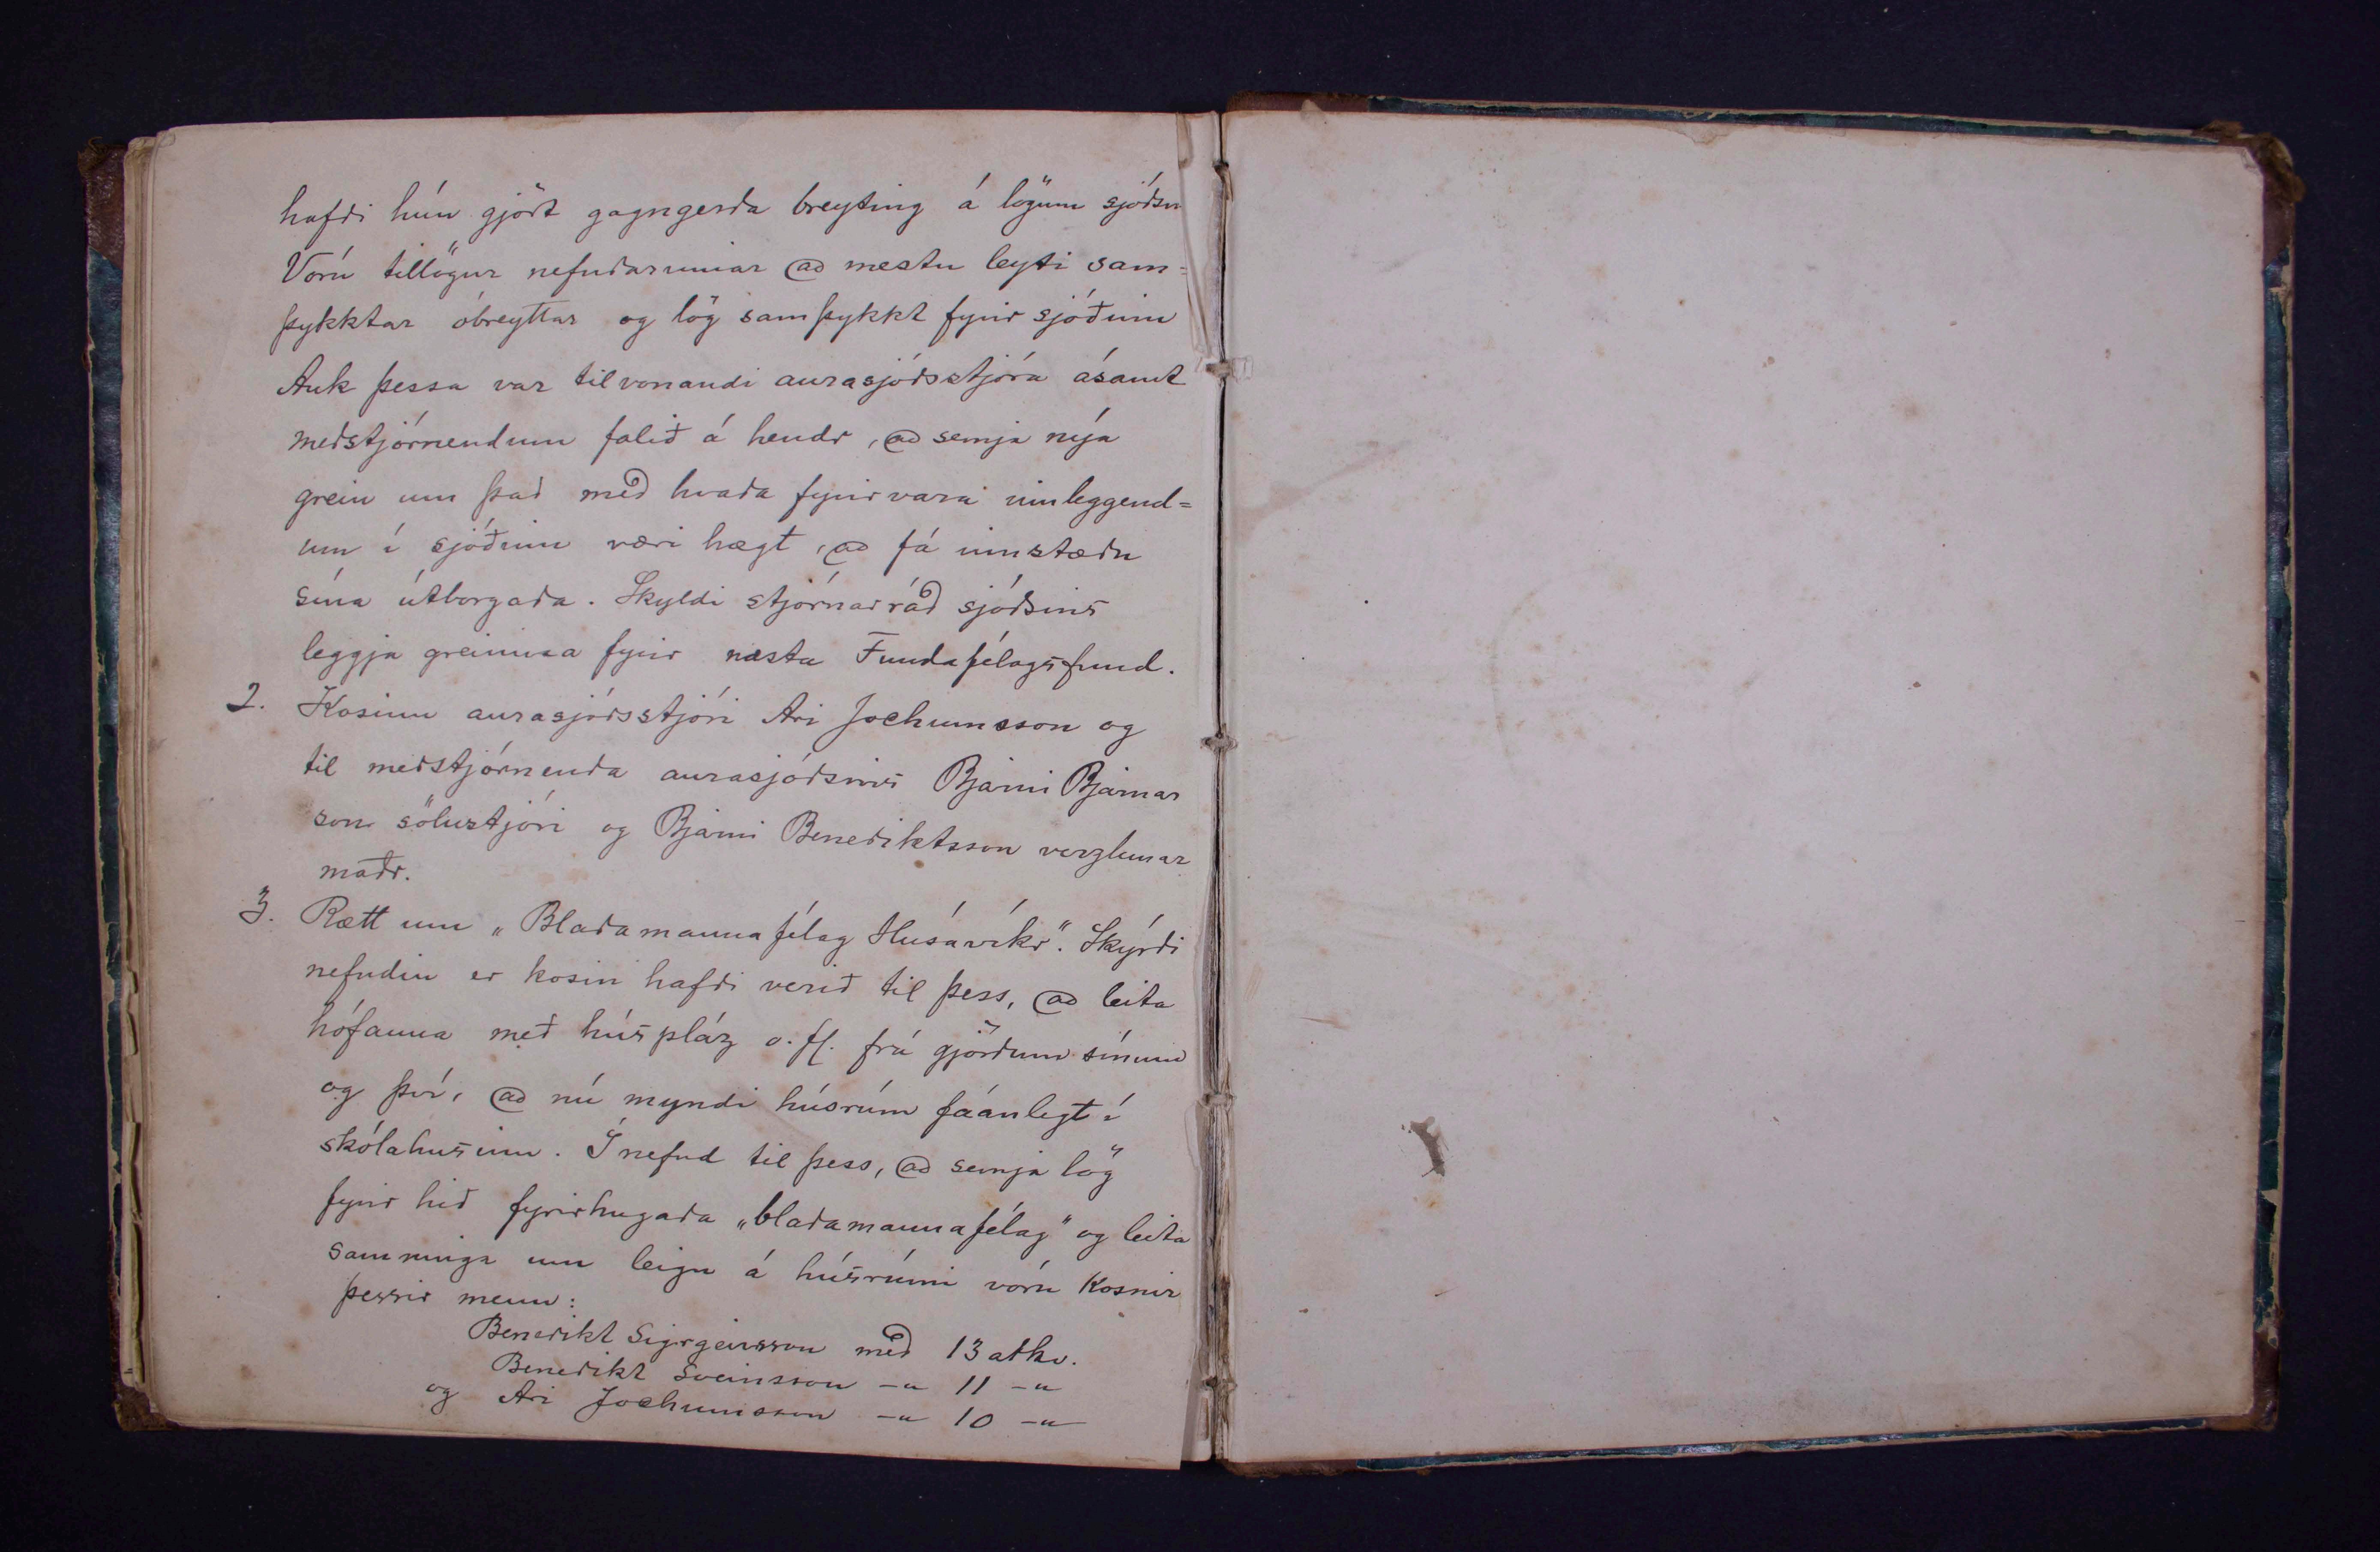 hafði hún gjört gagngerða breyting á lögum sjóðsin
Vorú tillögur nefndarinnar að mestu leyti sam=
þykktar óbreyttar og lög samþykkt fyrir sjóðinn
Auk þessa var tilvonandi aurasjóðsstjóra ásamt
meðstjórnendum falið á hendr, að semja nýja
grein um það með hvaða fyrirvara innleggend=
um í sjóðinn væri hægt, að fá innstæðu
sína útborgaða. Skyldi stjórnarráð sjóðsins
leggja greinina fyrir næsta Fundafélagsfund.
2. Kosinn aurasjóðsstjóri Ari Jochumsson og
til meðstjórnenda aurasjóðsins Bjarni Bjarnar
son sölustjóri og Bjarni Benediktsson verzlunar
maðr.
3. Rætt um „Blaðamannafélag Húsavíkr". Skýrði
nefndin er kosin hafði verið til þess, að leita
hófanna með húspláz o. fl. frá gjörðum sínum
og því, að nú myndi húsrúm fáanlegt í
skólahusinu. Í nefnd til þess, að semja lög
fyrir hið fyrirhugaða „blaðamannafélag" og leita
samninga um leigu á húsrúmi vóru kosnir
þessir menn:
Benedikt Sigrgeirsson með 13 atkv.
Benedikt Sveinsson -„ 11 -„
og Ari Jochumsson -„ 10 -„